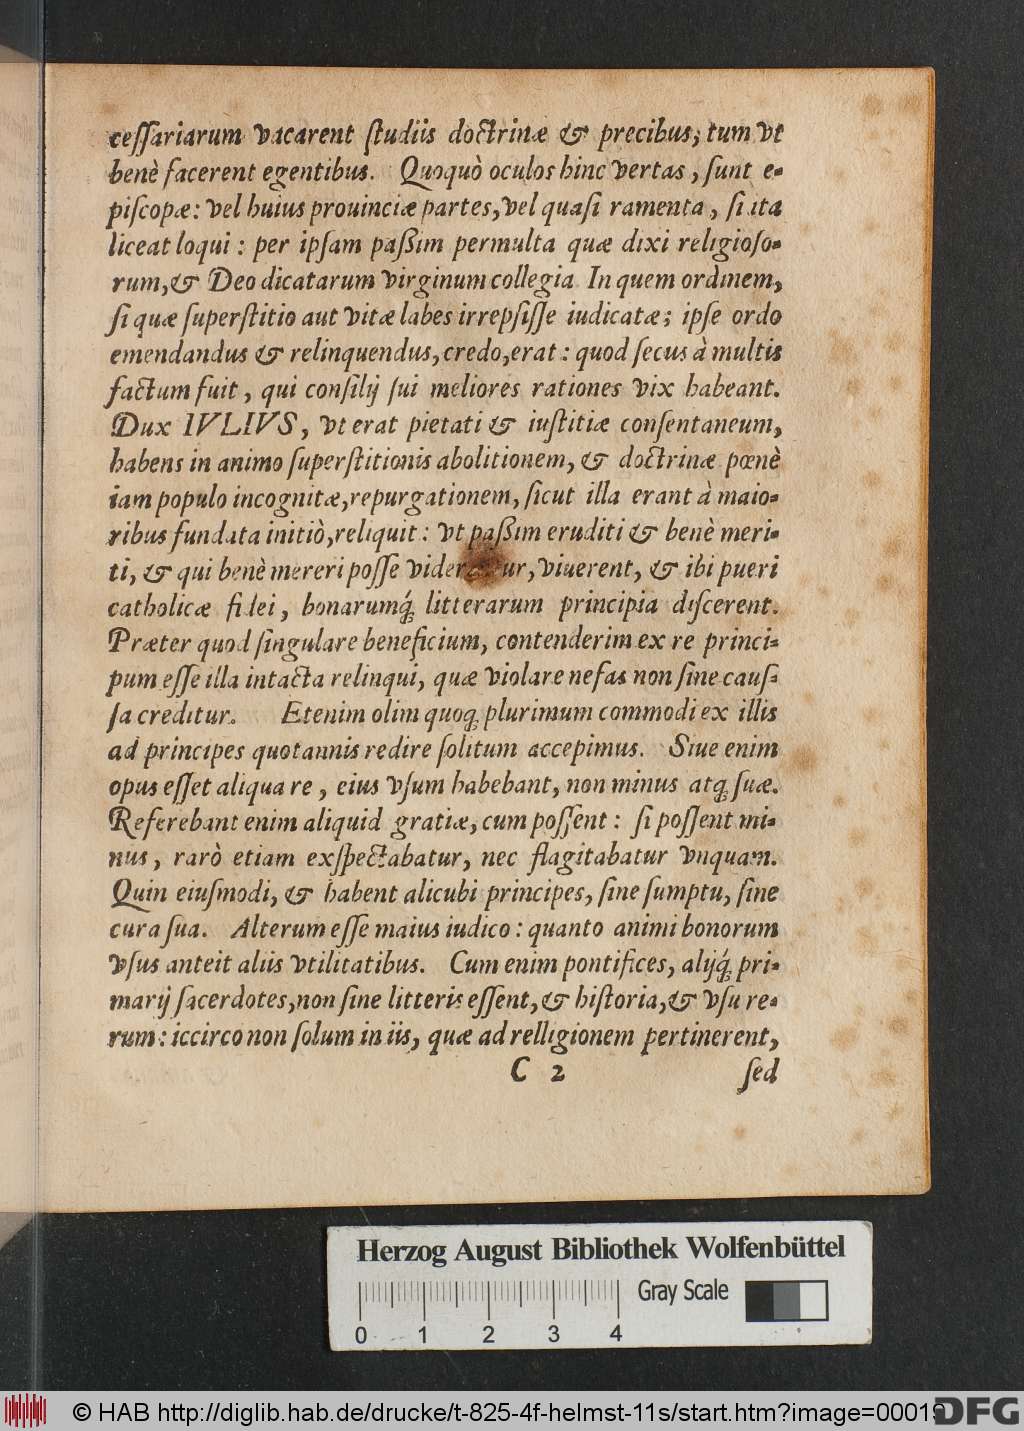 ceſſariarum vacarent ſtudiis doctrinæ & precibus; tum vt
benè facerent egentibus. Quoquò oculos hinc vertas, ſunt e-
piſcopæ: vel huius prouinciæ partes, vel quaſi ramenta, ſi ita
liceat loqui: per ipſam paßim permulta quæ dixi religioſo-
rum, & Deo dicatarum virginum collegia In quem ordinem,
ſi quæ ſuperſtitio aut vitæ labes irrepſiſſe iudicatæ; ipſe ordo
emendandus & relinquendus, credo, erat: quod ſecus à multis
factum fuit, qui conſilij ſui meliores rationes vix habeant.
Dux IVLIVS, vt erat pietati & iuſtitiæ conſentaneum,
habens in animo ſuperſtitionis abolitionem, & doctrinæ pœnè
iam populo incognitæ, repurgationem, ſicut illa erant à maio-
ribus fundata initiò, reliquit: vt paßim eruditi & benè meri-
ti, & qui benè mereri poſſe viuerent, & ibi pueri
catholicæ fidei, bonarumq́; litterarum principia diſcerent.
Præter quod ſingulare beneficium, contenderim ex re princi-
pum eſſe illa intacta relinqui, quæ violare nefas non ſine cauſ-
ſa creditur. Etenim olim quoq; plurimum commodi ex illis
ad principes quotannis redire ſolitum accepimus. Siue enim
opus eſſet aliqua re, eius vſum habebant, non minus atq; ſuæ.
Referebant enim aliquid gratiæ, cum poſſent: ſi poſſent mi-
nus, rarò etiam exſpectabatur, nec flagitabatur vnquam.
Quin eiuſmodi, & habent alicubi principes, ſine ſumptu, ſine
cura ſua. Alterum eſſe maius iudico: quanto animi bonorum
vſus anteit aliis vtilitatibus. Cum enim pontifices, alijq́; pri-
marij ſacerdotes, non ſine litteris eſſent, & hiſtoria, & vſu re-
rum: iccirco non ſolum in iis, quæ ad relligionem pertinerent,
C 2 ſed
Herzog August Bibliothek Wolfenbüttel
Gray Scale
0 1 2 3 4
© HAB http://diglib.hab.de/drucke/t-825-4f-helmst-11s/start.htm?image=00019
DFG